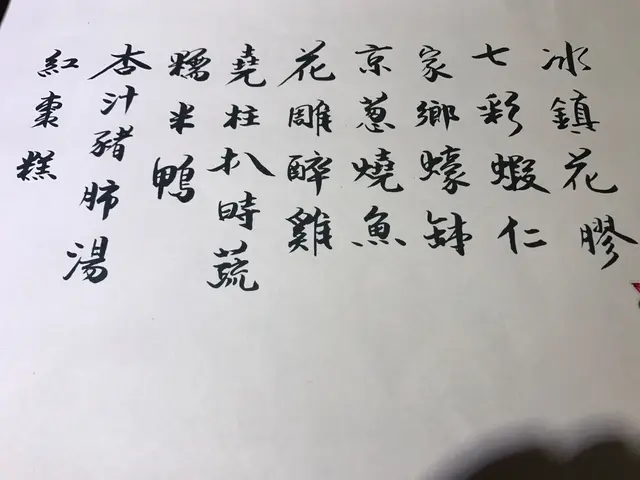 冰鎮花膠
七彩蝦仁
家鄉蠔缽
京蔥燒魚
花雕醉雞
堯柱扒時蔬
糯米鴨
杏汁豬肺湯
紅棗糕